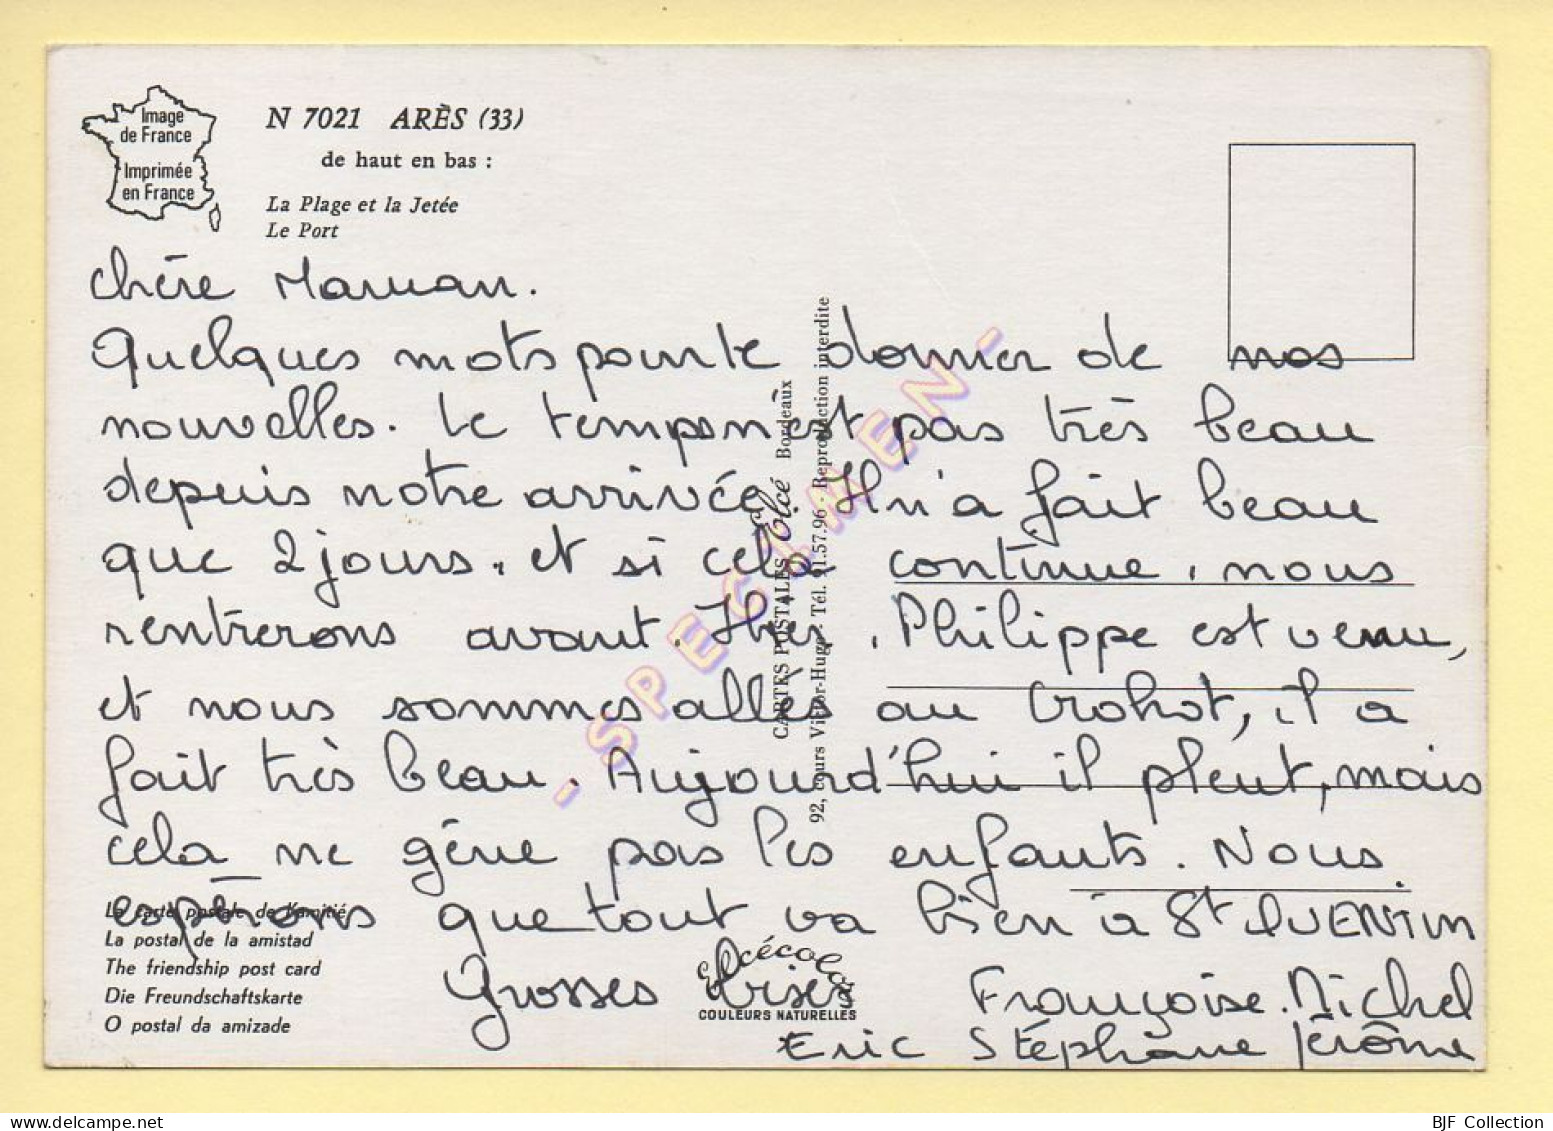 Image
de France
Imprimée
en France
N 7021 ARÈS (33)
de haut en bas :
La Plage et la Jetée
Le Port
Chère Maman.
Quelques mots pour te donner de nos
nouvelles. Le temps n'est pas très beau
depuis notre arrivée. Il n'a fait beau
que 2 jours. et si cela continue, nous
rentrerons avant. Hier, Philippe est venu,
et nous sommes allés au Crohot, il a
fait très beau. Aujourd'hui il pleut, mais
cela ne gène pas les enfants. Nous
espérons que tout va bien à St QUENTIN
Grosses bises Françoise. Michel
Eric Stéphane Jérôme
La carte postale de l'amitié
La postal de la amistad
The friendship post card
Die Freundschaftskarte
O postal da amizade
CARTES POSTALES Elcé Bordeaux
92, cours Victor-Hugo - Tél. 91.57.96 - Reproduction interdite
- SPECIMEN -
Elcécolor
COULEURS NATURELLES
BJF Collection